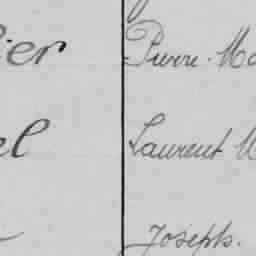 ier Pierre. Ma
el Laurent M
Joseph.